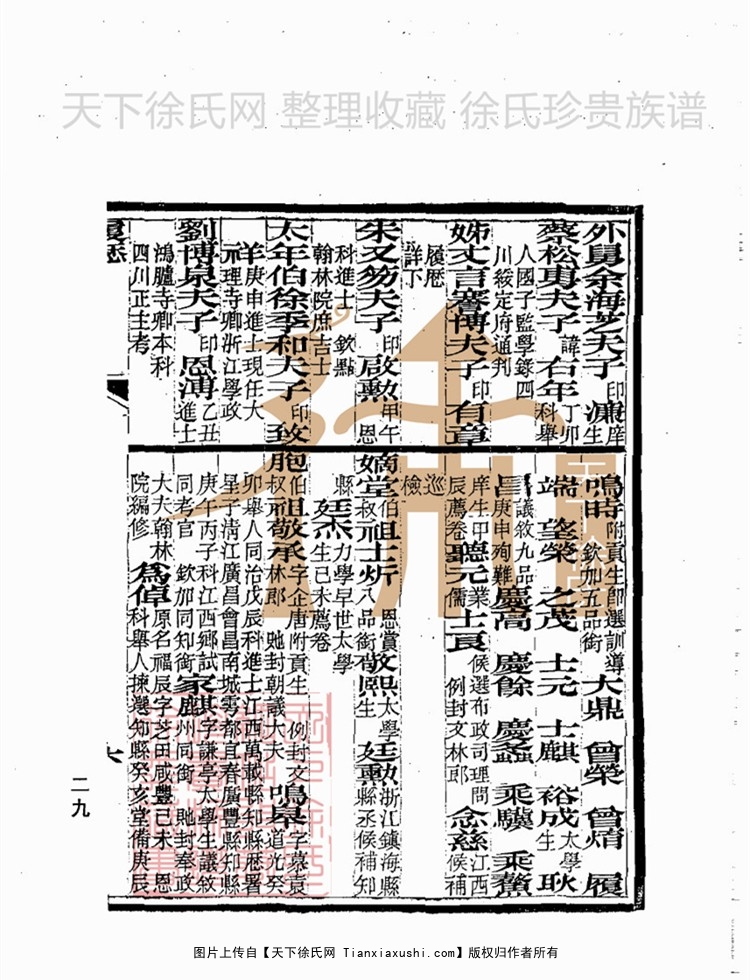 天下徐氏网 整理收藏 徐氏珍贵族谱
外舅余海芝夫子 印濂 庠生
蔡松甫夫子 諱右年 丁卯科舉
人國子監學錄四川綏定府通判
姊丈言謇博夫子 印有章
履歷詳下
朱又笏夫子 印啟勳 甲午 恩
科進士 欽點翰林院庶吉士
太年伯徐季和夫子 印致
祥 庚申進士現任大理寺卿浙江學政
劉博泉夫子 印恩溥 乙丑進士
鴻臚寺卿本科四川正主考
履歷
鳴時 附貢生即選訓導 欽加五品銜 大鼎 曾榮 曾熉 履
端 望榮 之茂 士元 士麒 裕成 太學生 耿
昌 議敘九品庚申殉難 慶嵩 慶餘 慶蠡 乘驥 乘鰲
庠生甲辰薦卷 聽元 業儒 士良 候選布政司理問 例封文林郎 念慈 江西候補
巡檢
嫡堂伯叔祖士炘 恩賞八品銜 敬熙 太學生 廷勳 浙江鎮海縣縣丞候補知
縣 廷杰 力學早世太學生己未薦卷
胞伯叔祖敬承 字企唐附貢生 例封文林郎 貤封朝議大夫 鳴皋 字慕袁道光癸
卯舉人同治戊辰科進士江西萬載縣知縣歷署星子清江廣昌會昌南城雩都宜春廣豐縣知縣
庚午丙子科江西鄉試同考官 欽加同知銜 家麒 字謙亭太學生議敘州同銜 貤封奉政
大夫翰林院編修 為倬 原名福辰字芝田咸豐己未 恩科舉人揀選知縣癸亥堂備庚辰
六
二九
图片上传自【天下徐氏网 Tianxiaxushi.com】版权归作者所有